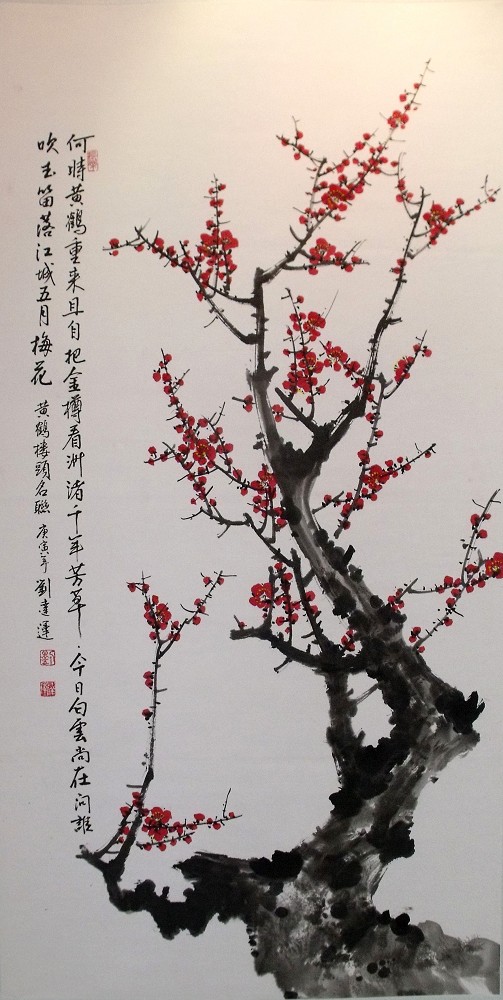 何時黃鶴重来且自把金樽看洲渚千年芳草今日白雲尚在问誰
吹玉笛落江城五月梅花
黄鶴楼頭名聯 庚寅年 劉達運